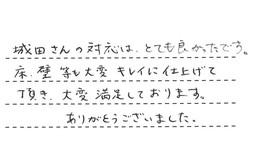 城田さんの対応は、とても良かったです。
床、壁 等も大変 キレイに仕上げて
頂き、大変 満足しております。
ありがとうございました。